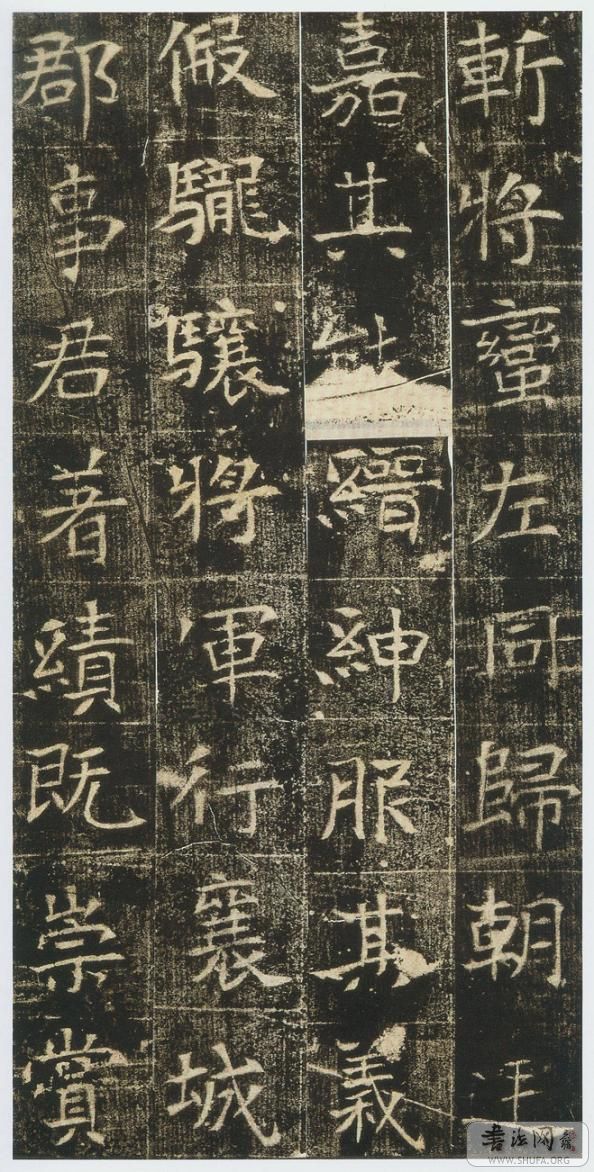 斬將蠻左同歸朝
嘉其縉紳服其義
假䮾驤將軍行襄城
郡事君著績既崇賞
書法网
WWW.SHUFA.ORG